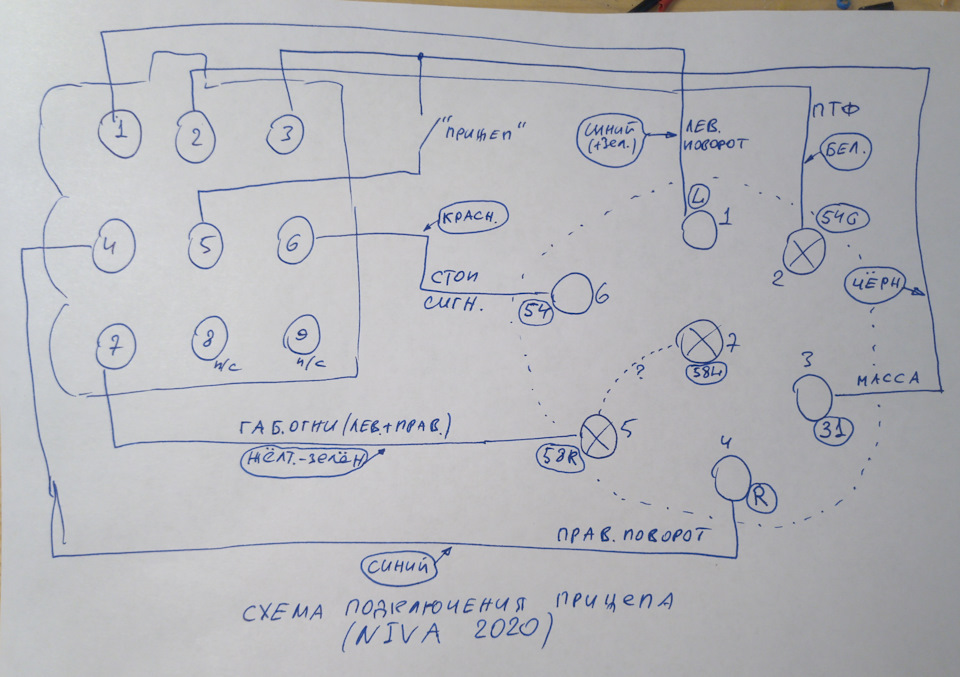 1
2
3
"ПРИЦЕП"
СИНИЙ
(+ЗЕЛ.)
ЛЕВ.
ПОВОРОТ
ПТФ
БЕЛ.
4
5
6
КРАСН.
L
1
54G
2
СТОП
СИГН.
54
6
ЧЁРН
7
8
н/с
9
н/с
?
7
58L
3
МАССА
31
ГАБ. ОГНИ (ЛЕВ.+ПРАВ.)
ЖЁЛТ.-ЗЕЛЁН
58R
5
4
R
ПРАВ. ПОВОРОТ
СИНИЙ
СХЕМА ПОДКЛЮЧЕНИЯ ПРИЦЕПА
(NIVA 2020)